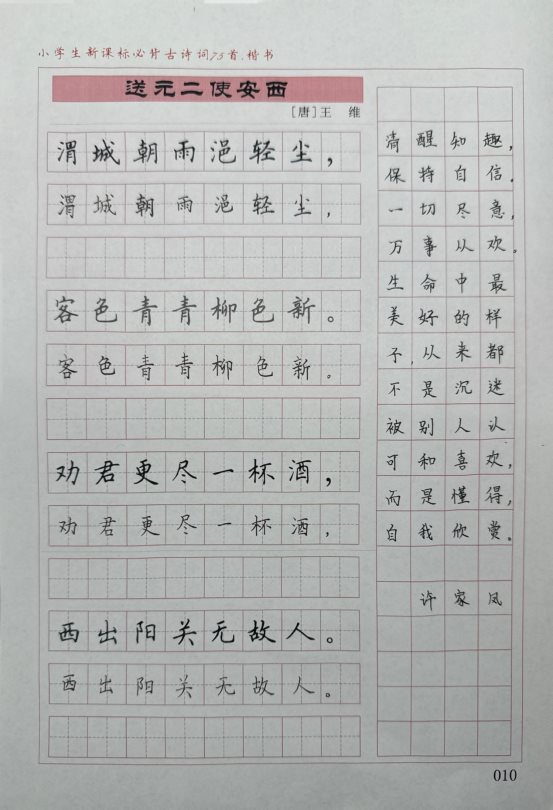 小学生新课标必背古诗词75首.楷书
送元二使安西
[唐]王 维
渭城朝雨浥轻尘，
渭城朝雨浥轻尘，
客色青青柳色新。
客色青青柳色新。
劝君更尽一杯酒，
劝君更尽一杯酒，
西出阳关无故人。
西出阳关无故人。
清醒知趣，
保持自信。
一切尽意，
万事从欢。
生命中最
美好的样
子，从来都
不是沉迷
被别人认
可和喜欢，
而是懂得，
自我欣赏。
许家凤
010